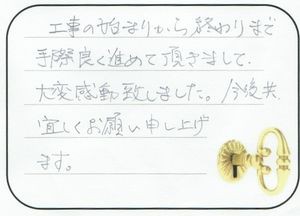 工事の始まりから終わりまで
手際良く進めて頂きまして、
大変感動致しました。今後共、
宜しくお願い申し上げ
ます。